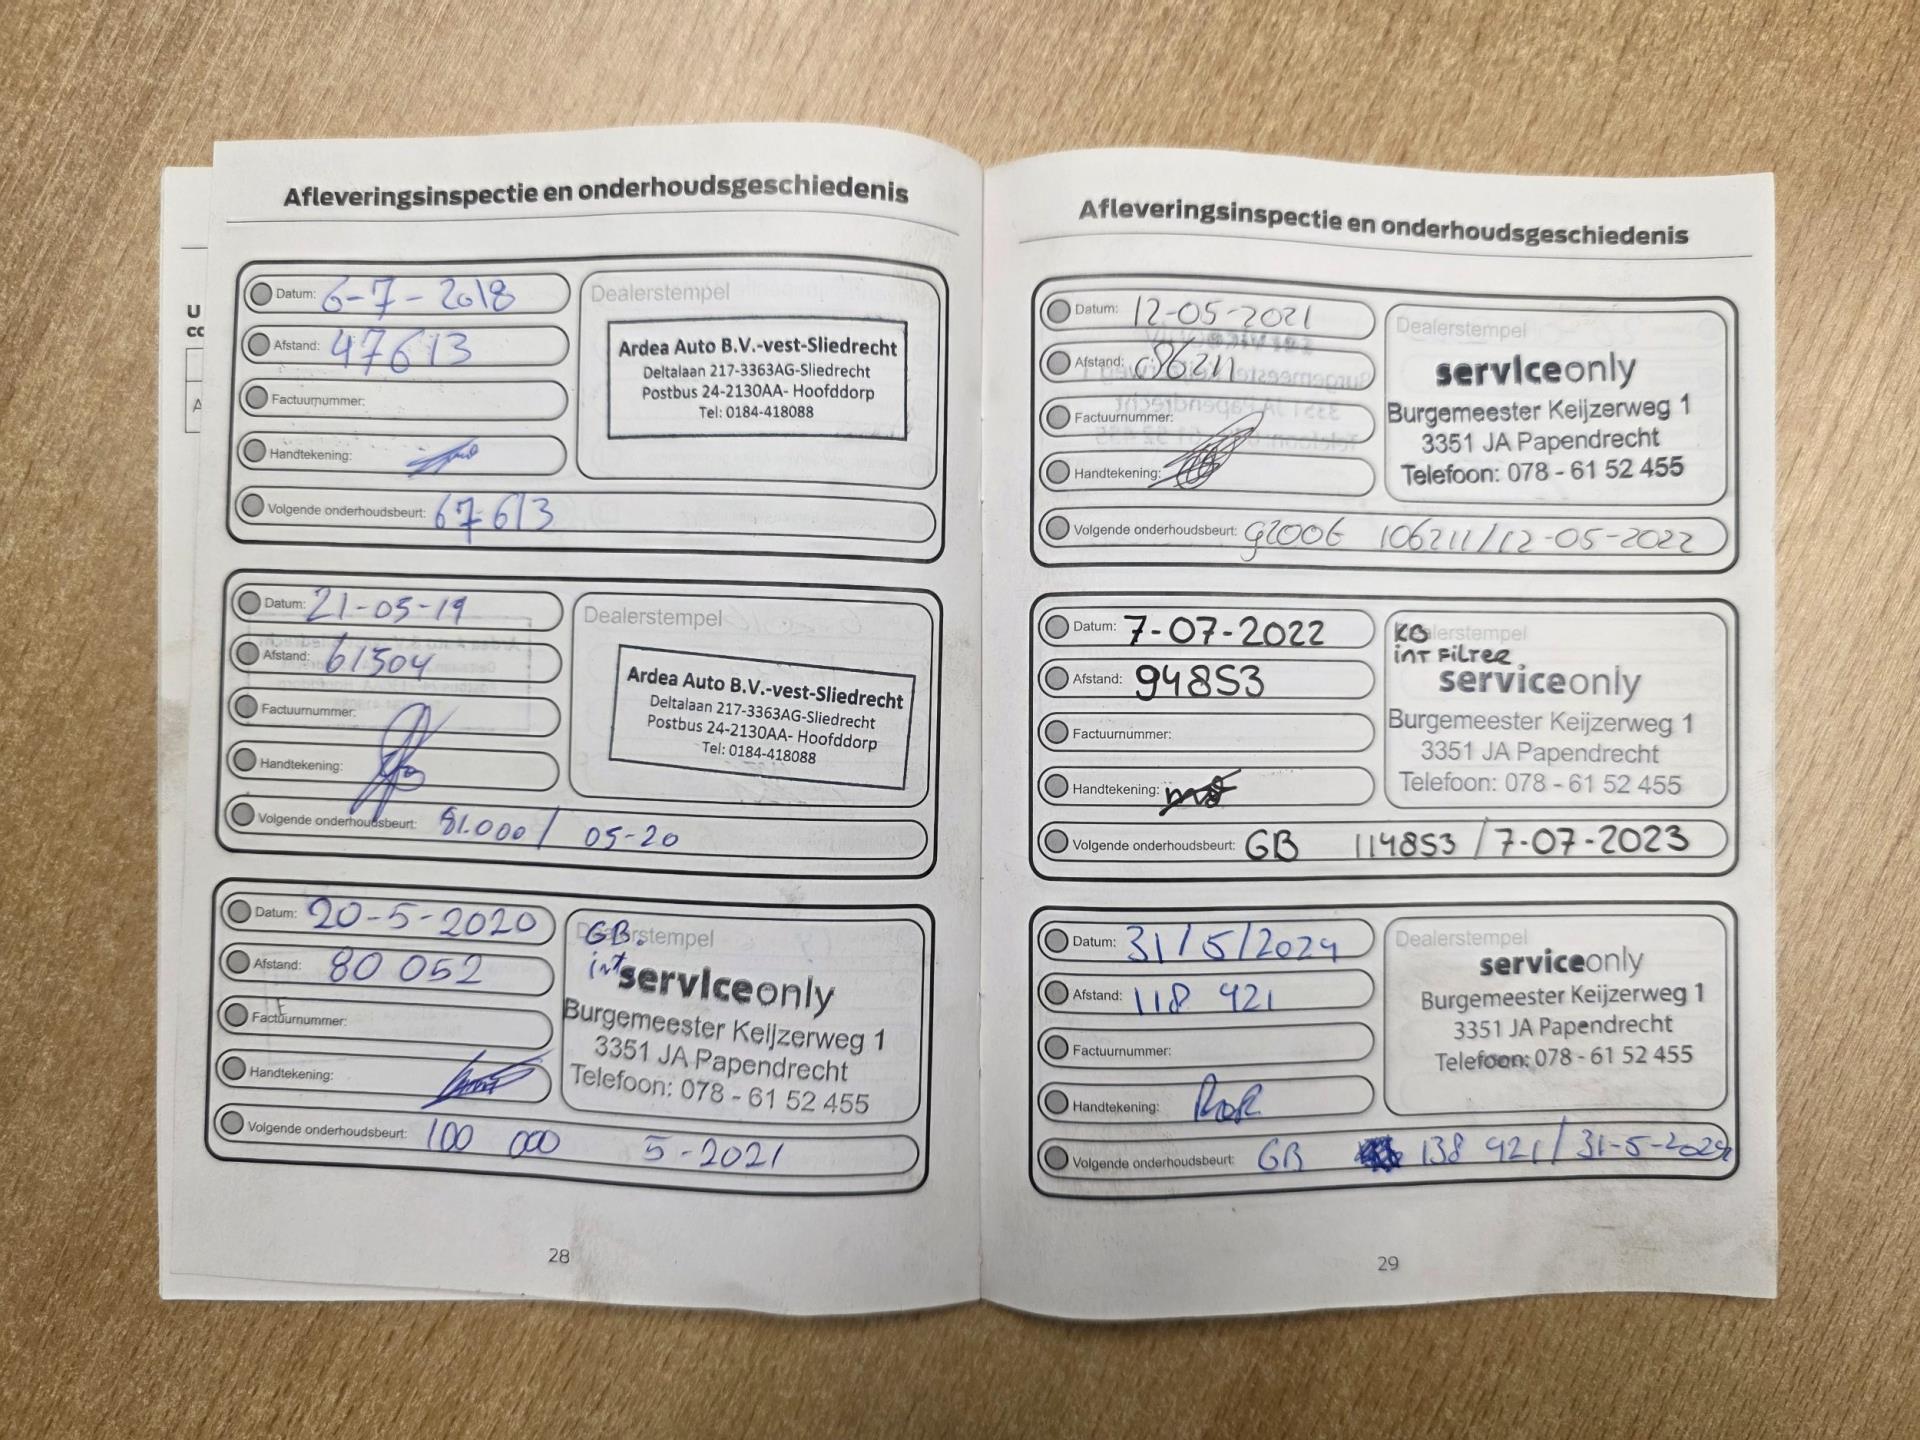 U
cc
A
Afleveringsinspectie en onderhoudsgeschiedenis
Datum: 6-7-2018
Afstand: 47613
Factuurnummer:
Handtekening:
Volgende onderhoudsbeurt: 67613
Dealerstempel
Ardea Auto B.V.-vest-Sliedrecht
Deltalaan 217-3363AG-Sliedrecht
Postbus 24-2130AA- Hoofddorp
Tel: 0184-418088
Datum: 21-05-19
Afstand: 61504
Factuurnummer:
Handtekening:
Volgende onderhoudsbeurt: 81.000 / 05-20
Dealerstempel
Ardea Auto B.V.-vest-Sliedrecht
Deltalaan 217-3363AG-Sliedrecht
Postbus 24-2130AA- Hoofddorp
Tel: 0184-418088
Datum: 20-5-2020
Afstand: 80 052
Factuurnummer:
Handtekening:
Volgende onderhoudsbeurt: 100 000 5-2021
Dealerstempel
GB.
int
serviceonly
Burgemeester Keijzerweg 1
3351 JA Papendrecht
Telefoon: 078 - 61 52 455
28
Afleveringsinspectie en onderhoudsgeschiedenis
Datum: 12-05-2021
Afstand: 086211
Factuurnummer:
Handtekening:
Volgende onderhoudsbeurt: 106211/12-05-2022
Dealerstempel
serviceonly
Burgemeester Keijzerweg 1
3351 JA Papendrecht
Telefoon: 078 - 61 52 455
Datum: 7-07-2022
Afstand: 94853
Factuurnummer:
Handtekening:
Volgende onderhoudsbeurt: GB 114853 / 7-07-2023
Dealerstempel
KB
INT FILTER
serviceonly
Burgemeester Keijzerweg 1
3351 JA Papendrecht
Telefoon: 078 - 61 52 455
Datum: 31/5/2024
Afstand: 118 921
Factuurnummer:
Handtekening:
Volgende onderhoudsbeurt: GB 138 921/31-5-202
Dealerstempel
serviceonly
Burgemeester Keijzerweg 1
3351 JA Papendrecht
Telefoon: 078 - 61 52 455
29